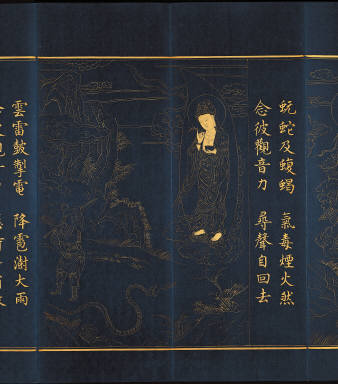 蚖蛇及蝮蝎　氣毒煙火然
念彼觀音力　尋聲自回去
雲雷皷掣電　降雹澍大雨